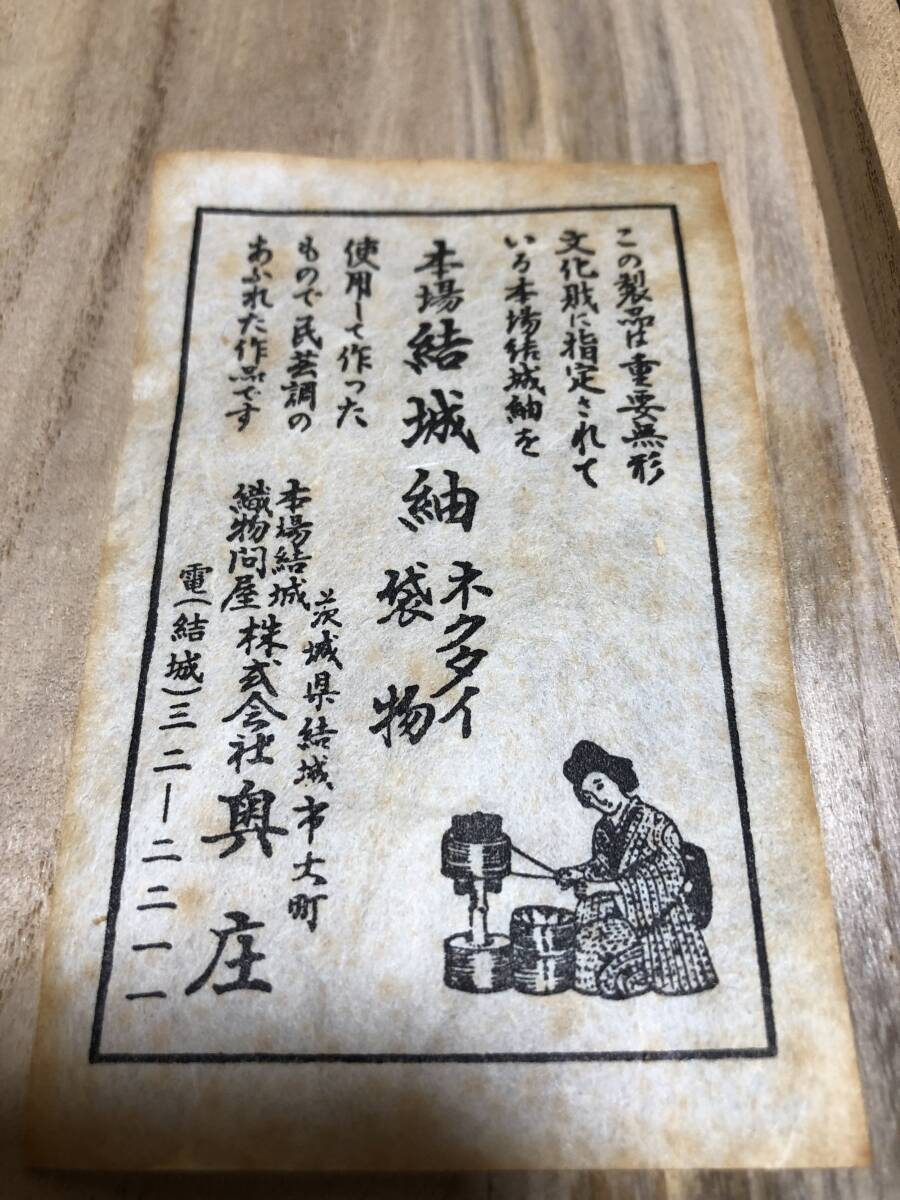 この製品は重要無形
文化財に指定されて
いる本場結城紬を
本場結城紬
ネクタイ
袋物
使用して作った
もので民芸調の
あふれた作品です
茨城県結城市大町
本場結城
織物問屋
株式会社奥庄
電(結城)三二ー二二一一